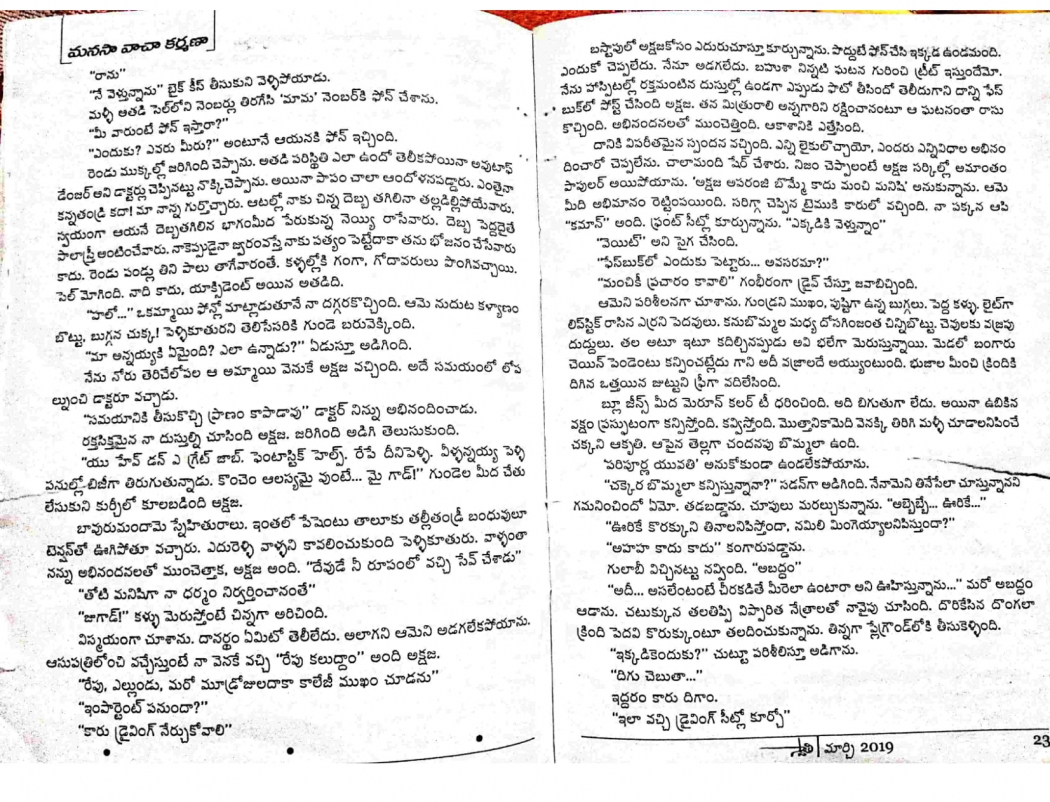 మనసా వాచా కర్మణా
“రాను”
“నే వెళ్తున్నాను” బైక్ కీస్ తీసుకుని వెళ్ళిపోయాడు.
మళ్ళీ అతడి సెల్‌లోని నెంబర్లు తిరగేసి ‘మామ’ నెంబర్‌కి ఫోన్ చేశాను.
“మీ వారుంటే ఫోన్ ఇస్తారా?”
“ఎందుకు? ఎవరు మీరు?” అంటూనే ఆయనకి ఫోన్ ఇచ్చింది.
రెండు ముక్కల్లో జరిగింది చెప్పాను. అతడి పరిస్థితి ఎలా ఉందో తెలీకపోయినా అవుటాఫ్
డేంజర్ అని డాక్టర్లు చెప్పినట్టు నొక్కిచెప్పాను. అయినా పాపం చాలా ఆందోళనపడ్డారు. ఎంతైనా
కన్నతండ్రి కదా! మా నాన్న గుర్తొచ్చారు. ఆటల్లో నాకు చిన్న దెబ్బ తగిలినా తల్లడిల్లిపోయేవారు.
స్వయంగా ఆయనే దెబ్బతగిలిన భాగంమీద పేరుకున్న నెయ్యి రాసేవారు. దెబ్బ పెద్దదైతే
పాలాస్త్రీ అంటించేవారు. నాకెప్పుడైనా జ్వరంవస్తే నాకు పత్యం పెట్టేదాకా తను భోజనం చేసేవారు
కాదు. రెండు పండ్లు తిని పాలు తాగేవారంతే. కళ్ళల్లోకి గంగా, గోదావరులు పొంగివచ్చాయి.
సెల్ మోగింది. నాది కాదు, యాక్సిడెంట్ అయిన అతడిది.
“హలో...” ఒకమ్మాయి ఫోన్లో మాట్లాడుతూనే నా దగ్గరకొచ్చింది. ఆమె నుదుట కళ్యాణం
బొట్టు, బుగ్గన చుక్క! పెళ్ళికూతురని తెలిసేసరికి గుండె బరువెక్కింది.
“మా అన్నయ్యకి ఏమైంది? ఎలా ఉన్నాడు?” ఏడుస్తూ అడిగింది.
నేను నోరు తెరిచేలోపల ఆ అమ్మాయి వెనుకే అక్షజ వచ్చింది. అదే సమయంలో లోప
ల్నుంచి డాక్టరూ వచ్చాడు.
“సమయానికి తీసుకొచ్చి ప్రాణం కాపాడావు” డాక్టర్ నన్ను అభినందించాడు.
రక్తసిక్తమైన నా దుస్తుల్ని చూసింది అక్షజ. జరిగింది అడిగి తెలుసుకుంది.
“యు హేవ్ డన్ ఎ గ్రేట్ జాబ్. ఫెంటాస్టిక్ హెల్ప్. రేపే దీనిపెళ్ళి. వీళ్ళన్నయ్య పెళ్ళి
పనుల్లో బిజీగా తిరుగుతున్నాడు. కొంచెం ఆలస్యమై వుంటే... మై గాడ్!” గుండెల మీద చేతు
లేసుకుని కుర్చీలో కూలబడింది అక్షజ.
బావురుమందామె స్నేహితురాలు. ఇంతలో పేషెంటు తాలూకు తల్లీతండ్రీ బంధువులూ
టెన్షన్‌తో ఊగిపోతూ వచ్చారు. ఎదురెళ్ళి వాళ్ళని కావలించుకుంది పెళ్ళికూతురు. వాళ్ళంతా
నన్ను అభినందనలతో ముంచెత్తాక, అక్షజ అంది. “దేవుడే నీ రూపంలో వచ్చి సేవ్ చేశాడు”
“తోటి మనిషిగా నా ధర్మం నిర్వర్తించానంతే”
“జుగాడ్!” కళ్ళు మెరుస్తోంటే చిన్నగా అరిచింది.
విస్మయంగా చూశాను. దానర్థం ఏమిటో తెలీలేదు. అలాగని ఆమెని అడగలేకపోయాను.
ఆసుపత్రిలోంచి వచ్చేస్తుంటే నా వెనకే వచ్చి “రేపు కలుద్దాం” అంది అక్షజ.
“రేపు, ఎల్లుండు, మరో మూడ్రోజులదాకా కాలేజీ ముఖం చూడను”
“ఇంపార్టెంట్ పనుందా?”
“కారు డ్రైవింగ్ నేర్చుకోవాలి”
బస్టాపులో అక్షజకోసం ఎదురుచూస్తూ కూర్చున్నాను. పొద్దుటే ఫోన్ చేసి ఇక్కడ ఉండమంది.
ఎందుకో చెప్పలేదు. నేనూ అడగలేదు. బహుశా నిన్నటి ఘటన గురించి ట్రీట్ ఇస్తుందేమో.
నేను హాస్పిటల్లో రక్తమంటిన దుస్తుల్లో ఉండగా ఎప్పుడు ఫొటో తీసిందో తెలీదుగాని దాన్ని ఫేస్
బుక్‌లో పోస్ట్ చేసింది అక్షజ. తన మిత్రురాలి అన్నగారిని రక్షించానంటూ ఆ ఘటనంతా రాసు
కొచ్చింది. అభినందనలతో ముంచెత్తింది. ఆకాశానికి ఎత్తేసింది.
దానికి విపరీతమైన స్పందన వచ్చింది. ఎన్ని లైకులొచ్చాయో, ఎందరు ఎన్నివిధాల అభినం
దించారో చెప్పలేను. చాలామంది షేర్ చేశారు. నిజం చెప్పాలంటే అక్షజ సర్కిల్లో అమాంతం
పాపులర్ అయిపోయాను. ‘అక్షజ అపరంజి బొమ్మే కాదు మంచి మనిషి’ అనుకున్నాను. ఆమె
మీది అభిమానం రెట్టింపయింది. సరిగ్గా చెప్పిన టైముకి కారులో వచ్చింది. నా పక్కన ఆపి
“కమాన్” అంది. ఫ్రంట్ సీట్లో కూర్చున్నాను. “ఎక్కడికి వెళ్తున్నాం”
“వెయిట్” అని సైగ చేసింది.
“ఫేస్‌బుక్‌లో ఎందుకు పెట్టారు... అవసరమా?”
“మంచికీ ప్రచారం కావాలి” గంభీరంగా డ్రైవ్ చేస్తు జవాబిచ్చింది.
ఆమెని పరిశీలనగా చూశాను. గుండ్రని ముఖం, పుష్టిగా ఉన్న బుగ్గలు. పెద్ద కళ్ళు. లైట్‌గా
లిప్‌స్టిక్ రాసిన ఎర్రని పెదవులు. కనుబొమ్మల మధ్య దోసగింజంత చిన్నిబొట్టు. చెవులకు వజ్రపు
దుద్దులు. తల అటూ ఇటూ కదిల్చినప్పుడు అవి భలేగా మెరుస్తున్నాయి. మెడలో బంగారు
చెయిన్ పెండెంటు కన్పించట్లేదు గాని అదీ వజ్రాలదే అయ్యుంటుంది. భుజాల మీంచి క్రిందికి
దిగిన ఒత్తయిన జుట్టుని ఫ్రీగా వదిలేసింది.
బ్లూ జీన్స్ మీద మెరూన్ కలర్ టీ ధరించింది. అది బిగుతుగా లేదు. అయినా ఉబికిన
వక్షం ప్రస్ఫుటంగా కన్పిస్తోంది. కవ్విస్తోంది. మొత్తానికామెది వెనక్కి తిరిగి మళ్ళీ చూడాలనిపించే
చక్కని ఆకృతి. ఆపైన తెల్లగా చందనపు బొమ్మలా ఉంది.
‘పరిపూర్ణ యువతి’ అనుకోకుండా ఉండలేకపోయాను.
“చక్కెర బొమ్మలా కన్పిస్తున్నానా?” సడన్‌గా అడిగింది. నేనామెని తినేసేలా చూస్తున్నానని
గమనించిందో ఏమో. తడబడ్డాను. చూపులు మరల్చుకున్నాను. “అబ్బెబ్బే... ఊరికే...”
“ఊరికే కొరక్కుని తినాలనిపిస్తోందా, నమిలి మింగెయ్యాలనిపిస్తుందా?”
“అహహ కాదు కాదు” కంగారుపడ్డాను.
గులాబీ విచ్చినట్టు నవ్వింది. “అబద్ధం”
“అదీ... అసలేంటంటే చీరకడితే మీరెలా ఉంటారా అని ఊహిస్తున్నాను...” మరో అబద్ధం
ఆడాను. చటుక్కున తలతిప్పి విప్పారిత నేత్రాలతో నావైపు చూసింది. దొరికేసిన దొంగలా
క్రింది పెదవి కొరుక్కుంటూ తలదించుకున్నాను. తిన్నగా ప్లేగ్రౌండ్‌లోకి తీసుకెళ్ళింది.
“ఇక్కడికెందుకు?” చుట్టూ పరిశీలిస్తూ అడిగాను.
“దిగు చెబుతా...”
ఇద్దరం కారు దిగాం.
“ఇలా వచ్చి డ్రైవింగ్ సీట్లో కూర్చో”
స్వాతి మార్చి 2019
23